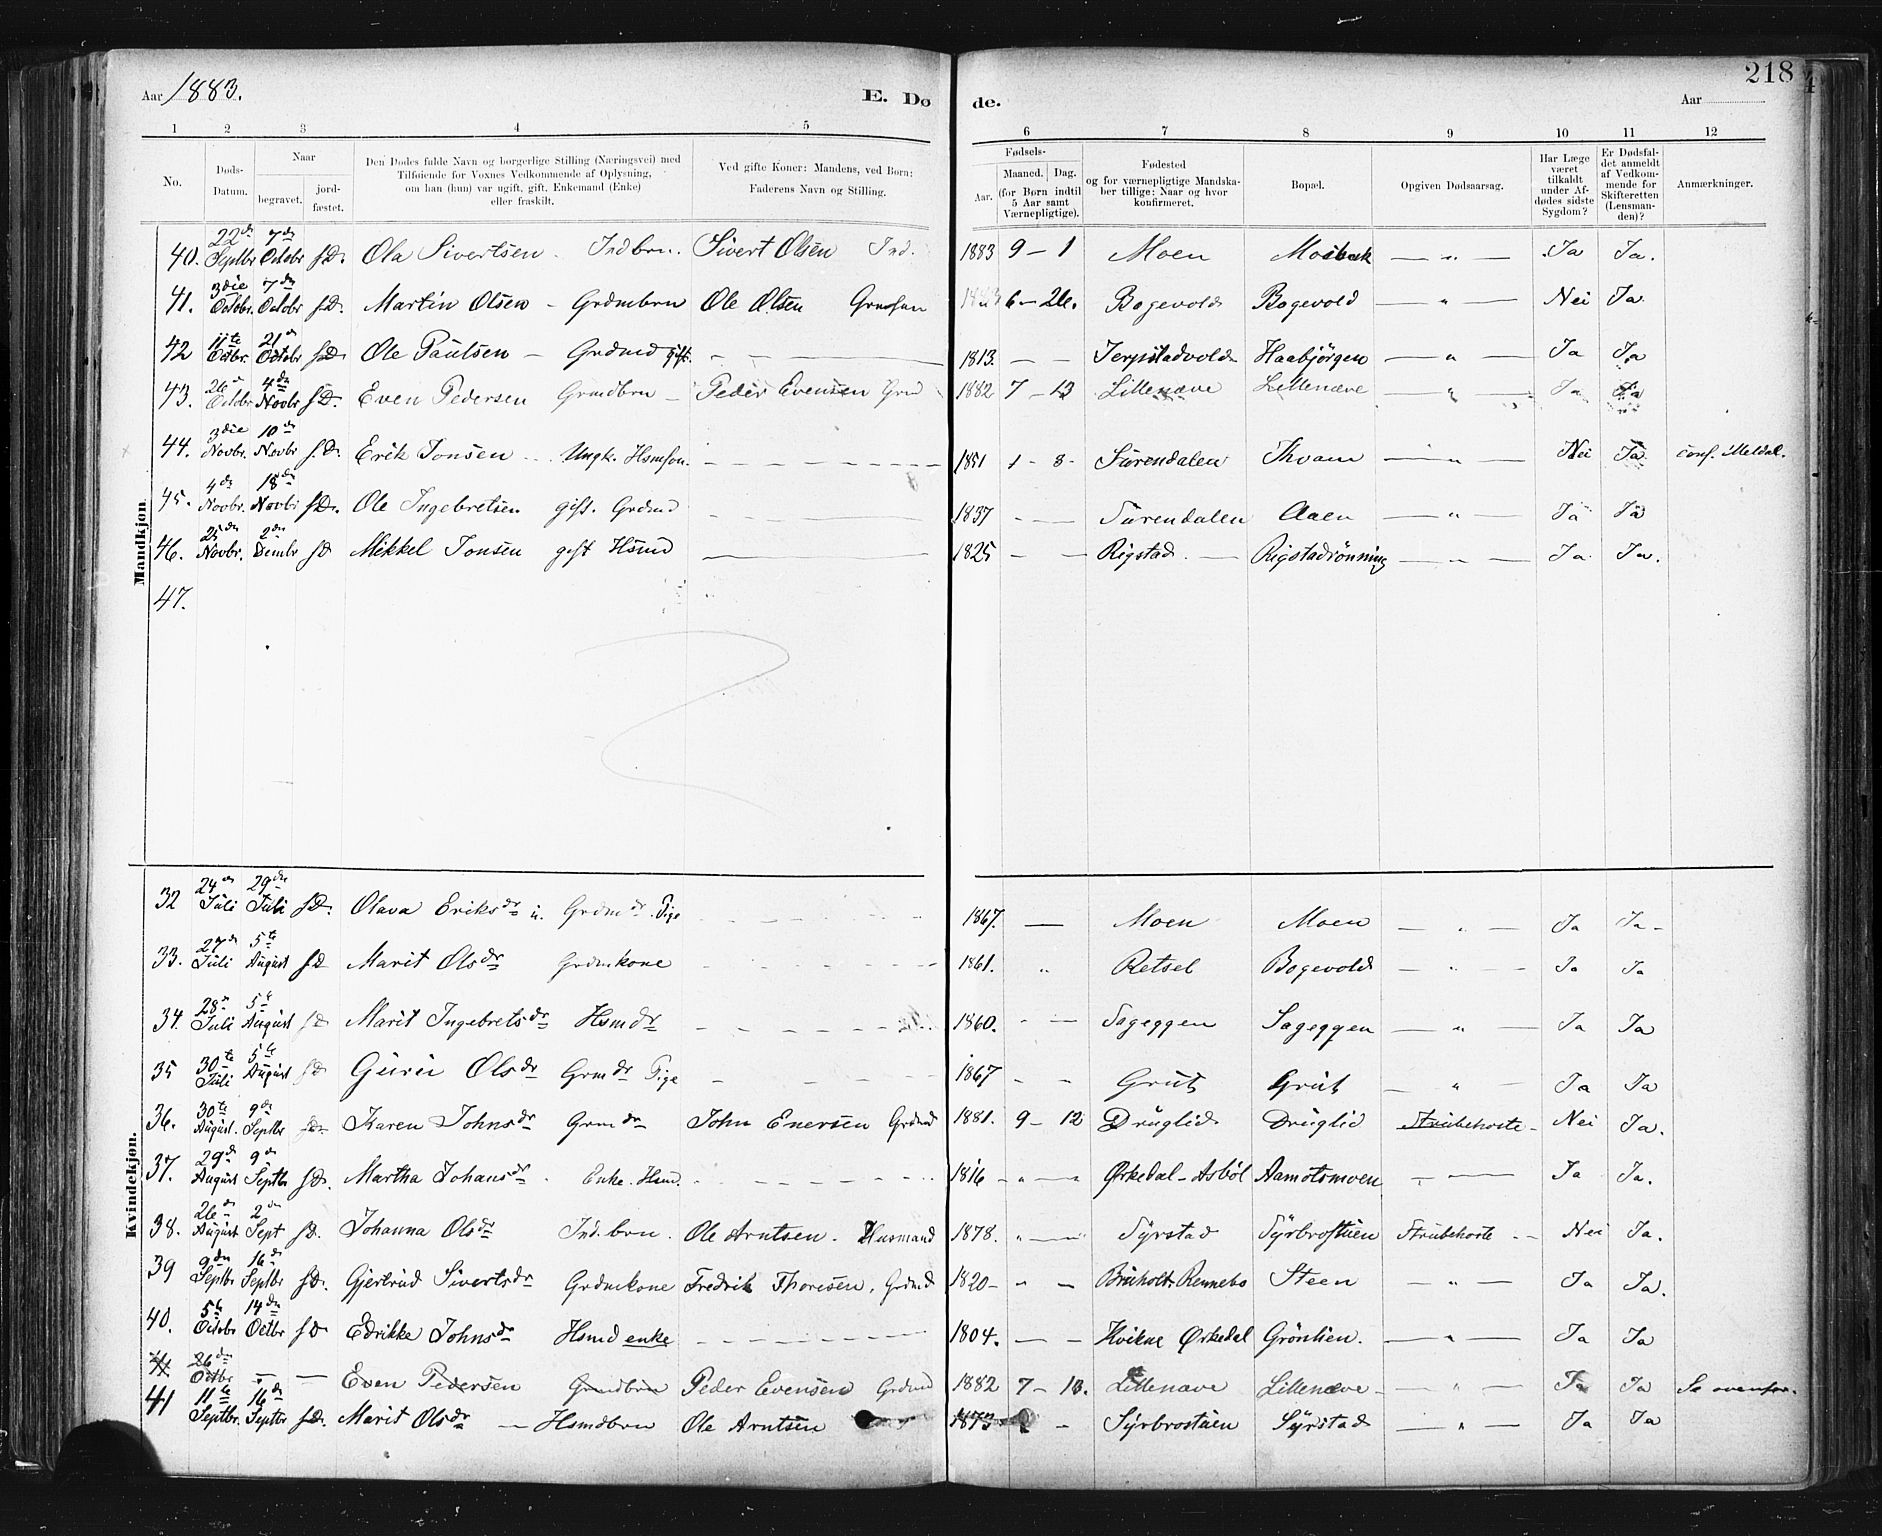 Aar 1883. E. Dø de. 218
Aar
1 2 3 4 5 6 7 8 9 10 11 12
No. Døds-Datum. Naar begravet. jordfæstet. Den Dødes fulde Navn og borgerlige Stilling (Næringsvei) med Tilføiende for Voxnes Vedkommende af Oplysning, om han (hun) var ugift, gift, Enkemand (Enke) eller fraskilt. Ved gifte Koner: Mandens, ved Børn: Faderens Navn og Stilling. Fødsels- Aar. Maaned. Dag. (for Børn indtil 5 Aar samt Værnepligtige). Fødested og for værnepligtige Mandskaber tillige: Naar og hvor konfirmeret. Bopæl. Opgiven Dødsaarsag. Har Læge været tilkaldt under Afdødes sidste Sygdom? Er Dødsfaldet anmeldt af Vedkommende for Skifteretten (Lensmanden)? Anmærkninger.
Mandkjøn.
40. 22de Septbr 7de Octobr s.D. Ola Sivertsen Indbrn. Sivert Olsen Ind. 1883 9 – 1 Moen Mosbak — " — Ja Ja.
41. 3die Octobr. 7de Octobr s.D. Martin Olsen – Grdmbrn Ole Olsen 6 – 26. Bogevold Bogevold — " — Nei Ja
42 11te Octbr. 21de Octobr s.D. Ole Paulsen – Grdmd gift. — — 1813. — — Jerpstadvold Haabjörgen — " — Ja Ja
43. 26de Octobr 4de Novbr s.D. Even Pedersen Grmdbrn – Peder Evensen Grd 1882 7 – 13 Lillenæve Lillenæve — " — Ja Ja
44. 3die Novbr. 10de Novbr s.D. Erik Jonsen Ungk. Hsmsøn. — — 1851 1 - 8 - Surendalen Kvam — " — Nei Ja conf. i Meldal.
45. 4de Novbr. 18de Novbr s.D. Ole Ingebretsen gift. Grdmd — — 1837 — — Surendalen Aaen — " — Ja Ja
46. 25de Novbr. 2den Dcmbr s.D Mikkel Jonsen gift Hsmd — 1825 — — Rigstad Rigstadrönning — " — Ja Ja.
47.
Kvindekjøn.
32 24de Juli 29de Juli s.D. Olava Eriksdr u. Grdmdr. Pige — — 1867. — Moen Moen — " — Ja Ja
33. 27de Juli 5te August s.D Marit Olsdr Grdmkone — — 1861. " Retsel Bogevold — " — Ja Ja
34. 28de Juli 5te August s.D Marit Ingebretsdr Hsmdr — — 1860. — — Sageggen Sageggen — " — Ja Ja
35 30te Juli 5te August s.D Guru Olsdr Grmdr Pige — — 1867 — — Grut Grut — " — Ja Ja
36. 30te August. 9de Septbr s.D. Karen Johnsdr Grmdr John Enersen Grdmd 1881. 9 – 12 Druglid Druglid Strubehoste – Nei Ja.
37. 29de August 9de Septbr s.D. Martha Johansdr. Enke. Hsmd. — — 1816 – " – " Ørkedal – Asböl Aamotsmoen — — Ja Ja.
38. 26de August 2den Sept s.D. Johanna Olsdr Ind. brn. Ole Arntsen. Husmand 1878. " — " Syrstad Syrbrostuen Strubehoste – – Nei Ja.
39 9de Septbr 16de Septbr s.D. Gjertrud Sivertsdr Grdmkone Fredrik Thoresen, Grdmd 1820 – " – Bruholt Rennebo Steen — " — Ja Ja.
40. 5te Octobr 14de Octbr s.D Edrikke Johnsdr Hsmd enke — — 1804. — — Hvikne Ørkedal Grönlien. — " — Ja Ja
41 26de Octbr — — Even Pedersen Grmdbrn Peder Evensen Grdmd 1882 7 – 13. Lillenæve Lillenæve — " — Ja Ja Se ovenfor.
41 11te Septbr. 16de Septbr s.D. Marit Olsdr — Hsmdbrn Ole Arntsen 1873 – Syrbrostuen Syrstad — " — Ja Ja